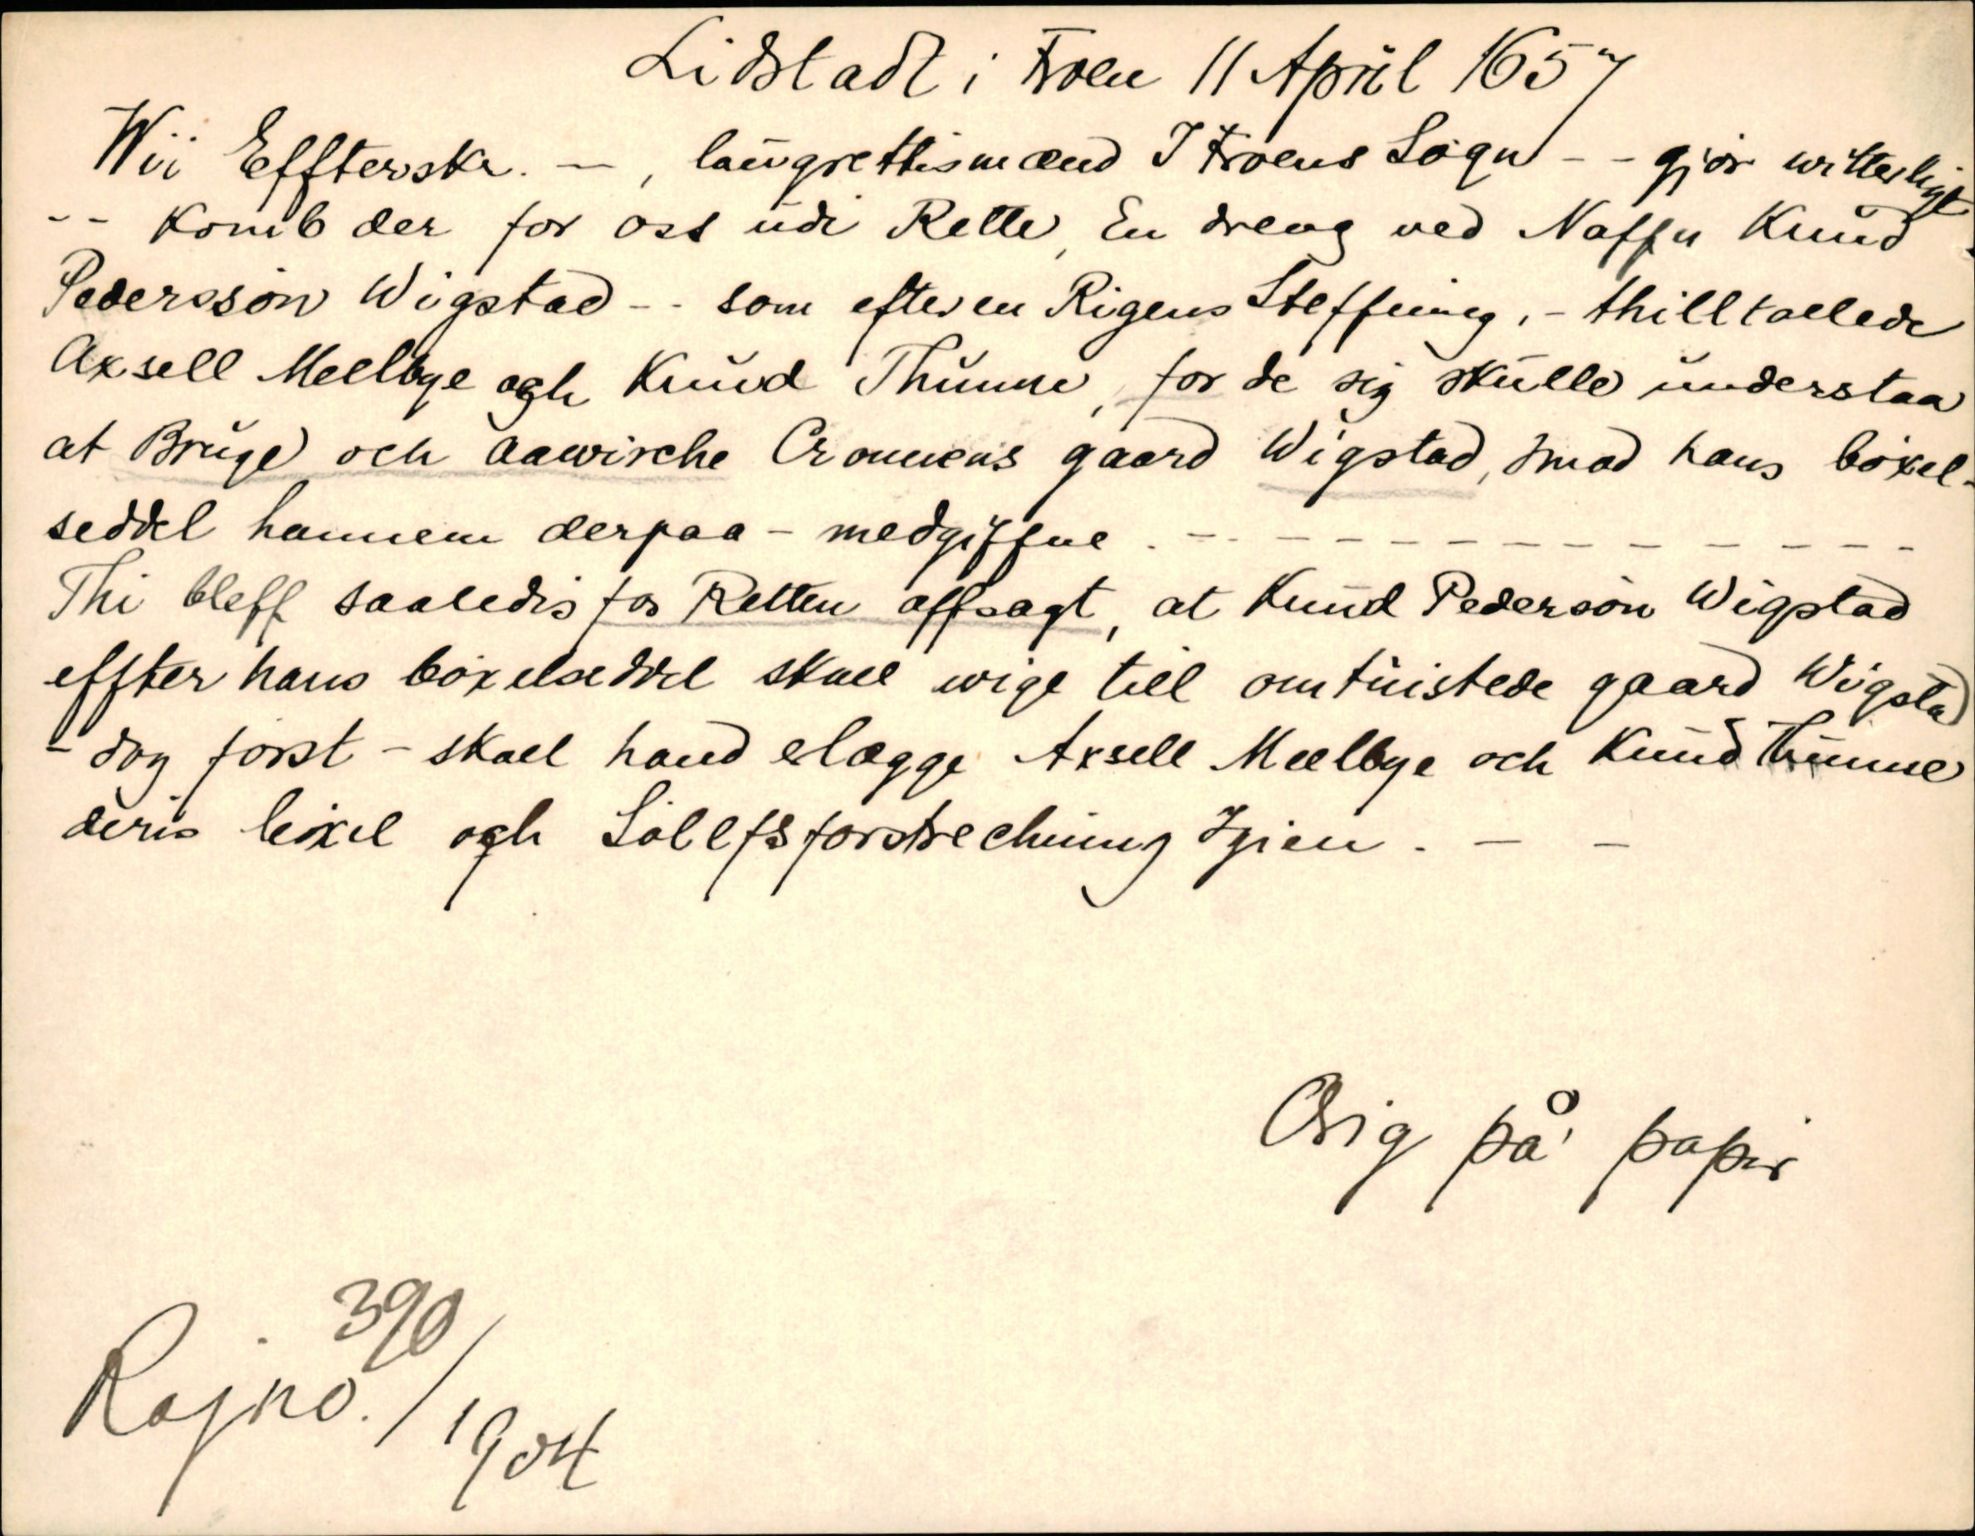 Lidstadt i Froen 11 April 1657
Wii Effterskr. —, laugrettismænd I Froens Sogn -- gjör witterligt
-- komb der for oss udi Rette, En dreng ved Naffn Knud
Pederssön Wigstad -- som efter en Rigens Steffning, - thilltallede
Axsell Meelbye och Knud Thunne, for de sig skulle understaa
at Bruge och aawirche Cronnens gaard Wigstad, imod hans böxel-
seddel hannem derpaa - medgiffne. - - - - - - - - - - - - - -
Thi bleff saaledis for Retten affsagt, at Knud Pedersön Wigstad
effter hans böxelseddel skall wige till omtuistede gaard Wigstad
- dog först - skall hand elægge Axsell Meelbye och Knud Thunne
deris böxel och Sölfsforstrechning Igien. — —
Orig på papir
Rajno. 390/1904